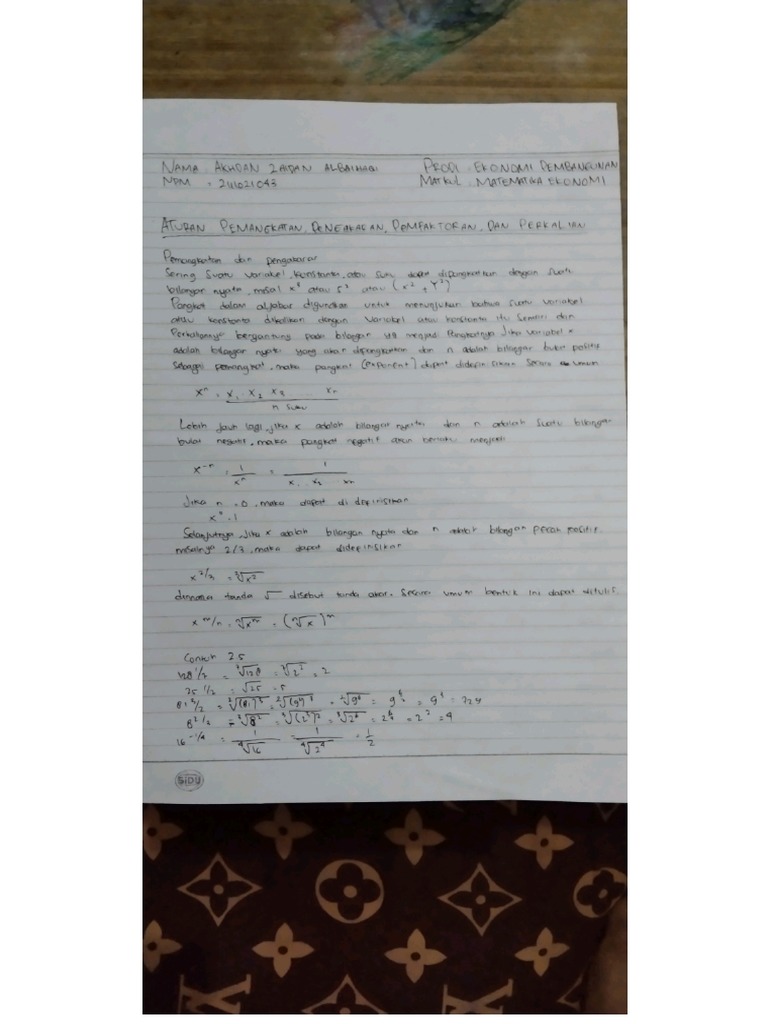 NAMA : AKHDAN ZAIDAN ALBAIHAQI PRODI : EKONOMI PEMBANGUNAN
NPM : 241021043 MATKUL : MATEMATIKA EKONOMI
ATURAN PEMANGKATAN, PENGAKARAN, PEMFAKTORAN, DAN PERKALIAN
Pemangkatan dan pengakaran
Sering suatu variabel, konstanta, atau suku dapat dipangkatkan dengan suatu
bilangan nyata, misal x⁸ atau 5² atau (x² + y²)
Pangkat dalam aljabar digunakan untuk menunjukan bahwa suatu variabel
atau konstanta dikalikan dengan variabel atau konstanta itu sendiri dan
Perkaliannya bergantung pada bilangan yg menjadi Pangkatnya Jika variabel x
adalah bilangan nyata yang akan dipangkatkan dan n adalah bilangan bulat positif
sebagai pemangkat, maka pangkat (exponent) dapat didefinisikan secara umum
xⁿ = x₁ x₂ x₃ xₙ
n suku
Lebih jauh lagi, jika x adalah bilangan nyata dan n adalah suatu bilangan
bulat negatif, maka pangkat negatif akan berlaku menjadi
x⁻ⁿ = 1/xⁿ = 1/x₁ x₂ ... xₙ
Jika n = 0, maka dapat di definisikan
x⁰ = 1
Selanjutnya, Jika x adalah bilangan nyata dan n adalah bilangan pecah positif
misalnya 2/3, maka dapat didefinisikan
x^2/3 = ³√x²
dimana tanda √ disebut tanda akar. Secara umum bentuk ini dapat ditulis
x^m/n = ⁿ√xᵐ = (ⁿ√x)ᵐ
Contoh 2.5
128^1/2 = √128 = √2⁷ = 2
25^1/2 = √25 = 5
81^3/2 = ²√(81)³ = ²√(9²)³ = ²√9⁶ = 9 = 9³ = 729
8^2/2 = √8² = √(2³)² = ³√2⁶ = 2 = 2² = 4
16^-1/4 = 1/⁴√16 = 1/⁴√2⁴ = 1/2
SIDU